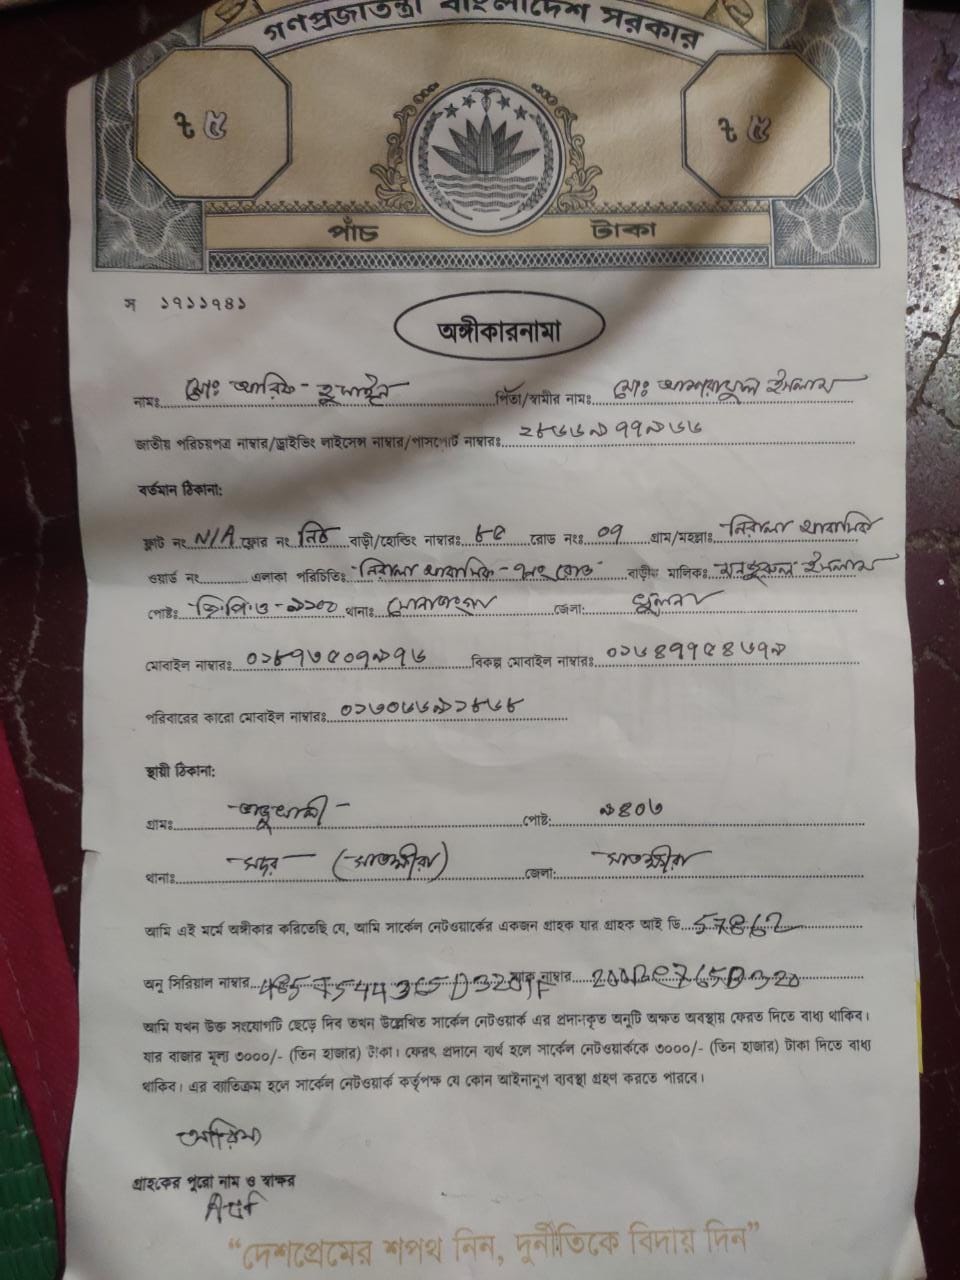 গণপ্রজাতন্ত্রী বাংলাদেশ সরকার
৳ ৫ ৳ ৫
পাঁচ টাকা
স ১৭১১৭৪১
অঙ্গীকারনামা
নামঃ মোঃ আরিফ হুসাইন পিতা/স্বামীর নামঃ মোঃ ইসলাম
জাতীয় পরিচয়পত্র নাম্বার/ড্রাইভিং লাইসেন্স নাম্বার/পাসপোর্ট নাম্বারঃ ২৮৬৬৯৭৭৯৬৬
বর্তমান ঠিকানা:
ফ্লাট নং N/A ফ্লোর নং নিচ বাড়ী/হোল্ডিং নাম্বারঃ ৮৫ রোড নংঃ ০৭ গ্রাম/মহল্লাঃ নিরালা আবাসিক
ওয়ার্ড নং এলাকা পরিচিতিঃ নিরালা আবাসিক ৭নং রোড বাড়ীর মালিকঃ ইসলাম
পোষ্টঃ জি.পি.ও - ৯১০০ থানাঃ সোনাডাংগা জেলা: খুলনা
মোবাইল নাম্বারঃ ০১৮৭৬৫০৭৯৭৬ বিকল্প মোবাইল নাম্বারঃ ০১৬৪৭৭৫৪৬৭৯
পরিবারের কারো মোবাইল নাম্বারঃ ০১৭০৬৬৯১৮৬৮
স্থায়ী ঠিকানা:
গ্রামঃ পোষ্ট: ৯৪০৩
থানাঃ সদর (সাতক্ষীরা) জেলা: সাতক্ষীরা
আমি এই মর্মে অঙ্গীকার করিতেছি যে, আমি সার্কেল নেটওয়ার্কের একজন গ্রাহক যার গ্রাহক আই ডি 57862
অনু সিরিয়াল নাম্বার ম্যাক নাম্বার
আমি যখন উক্ত সংযোগটি ছেড়ে দিব তখন উল্লেখিত সার্কেল নেটওয়ার্ক এর প্রদানকৃত অনুটি অক্ষত অবস্থায় ফেরত দিতে বাধ্য থাকিব।
যার বাজার মূল্য ৩০০০/- (তিন হাজার) টাকা। ফেরৎ প্রদানে ব্যর্থ হলে সার্কেল নেটওয়ার্ককে ৩০০০/- (তিন হাজার) টাকা দিতে বাধ্য
থাকিব। এর ব্যতিক্রম হলে সার্কেল নেটওয়ার্ক কর্তৃপক্ষ যে কোন আইনানুগ ব্যবস্থা গ্রহণ করতে পারবে।
আরিফ
গ্রাহকের পুরো নাম ও স্বাক্ষর
Arif
“দেশপ্রেমের শপথ নিন, দুর্নীতিকে বিদায় দিন”